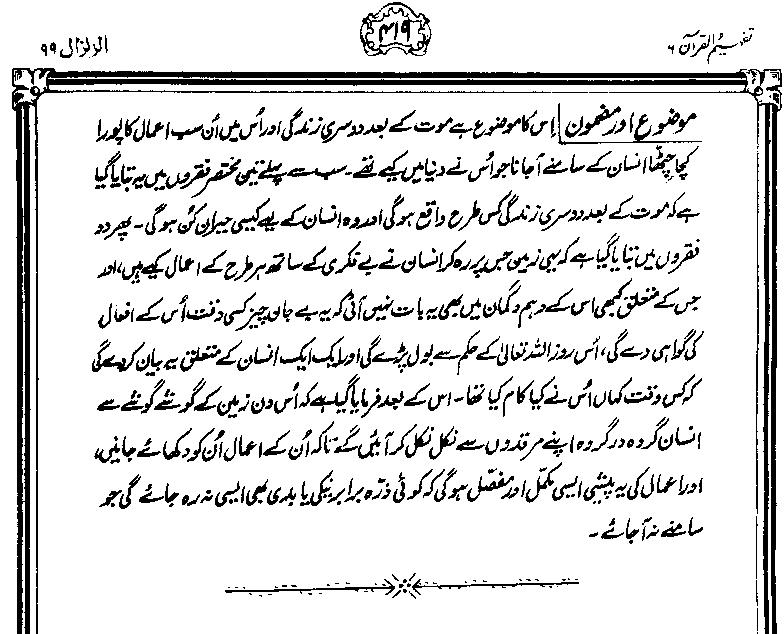 تفہیم القرآن ۶
۴۱۹
الزلزال ۹۹
موضوع اور مضمون اِس کا موضوع ہے موت کے بعد دوسری زندگی اور اُس میں اُن سب اعمال کا پورا
کچا چٹھا انسان کے سامنے آجانا جو اُس نے دنیا میں کیے تھے۔ سب سے پہلے تین مختصر فقروں میں یہ بتایا گیا
ہے کہ موت کے بعد دوسری زندگی کس طرح واقع ہوگی اور وہ انسان کے لیے کیسی حیران کُن ہوگی۔ پھر دو
فقروں میں بتایا گیا ہے کہ یہی زمین جس پر رہ کر انسان نے بے فکری کے ساتھ ہر طرح کے اعمال کیے ہیں، اور
جس کے متعلق کبھی اس کے وہم و گمان میں بھی یہ بات نہیں آئی کہ یہ بے جان چیز کسی وقت اُس کے افعال
کی گواہی دے گی، اُس روز اللہ تعالیٰ کے حکم سے بول پڑے گی اور ایک ایک انسان کے متعلق یہ بیان کردے گی
کہ کس وقت کہاں اُس نے کیا کام کیا تھا۔ اس کے بعد فرمایا گیا ہے کہ اُس دن زمین کے گوشے گوشے سے
انسان گروہ در گروہ اپنے مرقدوں سے نکل نکل کر آئیں گے تاکہ اُن کے اعمال اُن کو دکھائے جائیں،
اور اعمال کی یہ پیشی ایسی مکمل اور مفصل ہوگی کہ کوئی ذرّہ برابر نیکی یا بدی بھی ایسی نہ رہ جائے گی جو
سامنے نہ آجائے۔